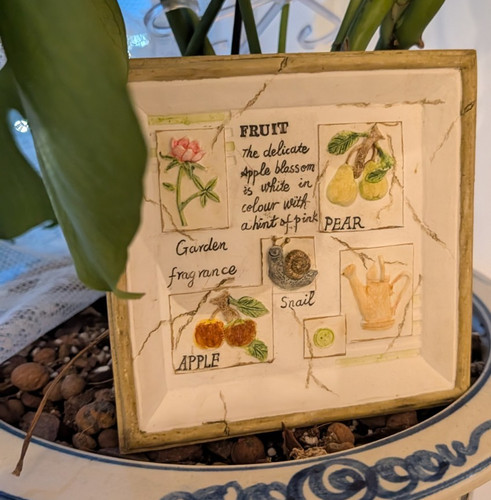 FRUIT
The delicate
Apple blassom
is white in
colour with
a hint of pink
PEAR
Garden
fragrance
Snail
APPLE